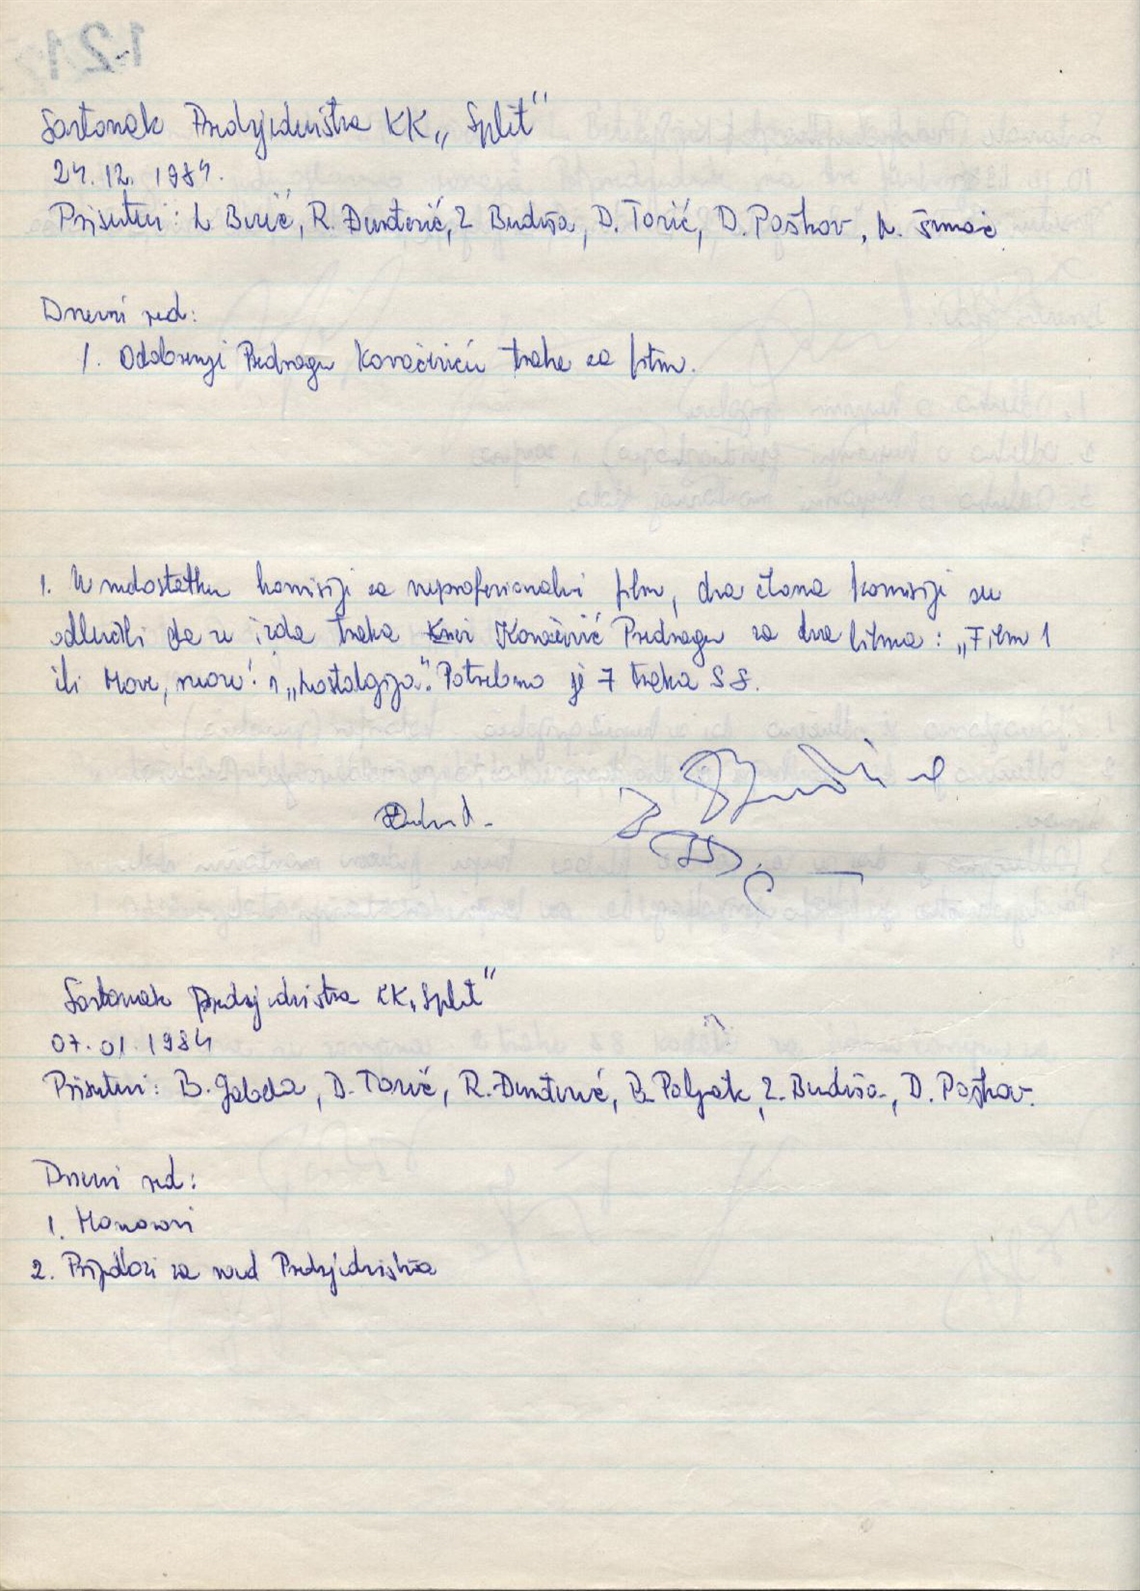 Sastanak Predsjedništva KK „Split“
24.12.1984.
Prisutni: L. Burić, R. Đunđević, Z. Budiša, D. Torić, D. Poškov,
Dnevni red:
1. Odobrenje Predragu Kovačiviću trake za film.
1. U nedostatku komisije za neprofesionalni film, dva člana komisije su
odlučili da se izda traka Kovačivić Predragu za dva filma: „Film 1
ili Move, move“ i „Nostalgija“. Potrebno je 7 traka S8.
Sastanak predsjedništva KK „Split“
07.01.1984
Prisutni: B. Gabela, D. Torić, R. Đunđević, B. Poljak, Z. Budiša, D. Poškov.
Dnevni red:
1. Honorari
2. Prijedlozi za rad Predsjedništva